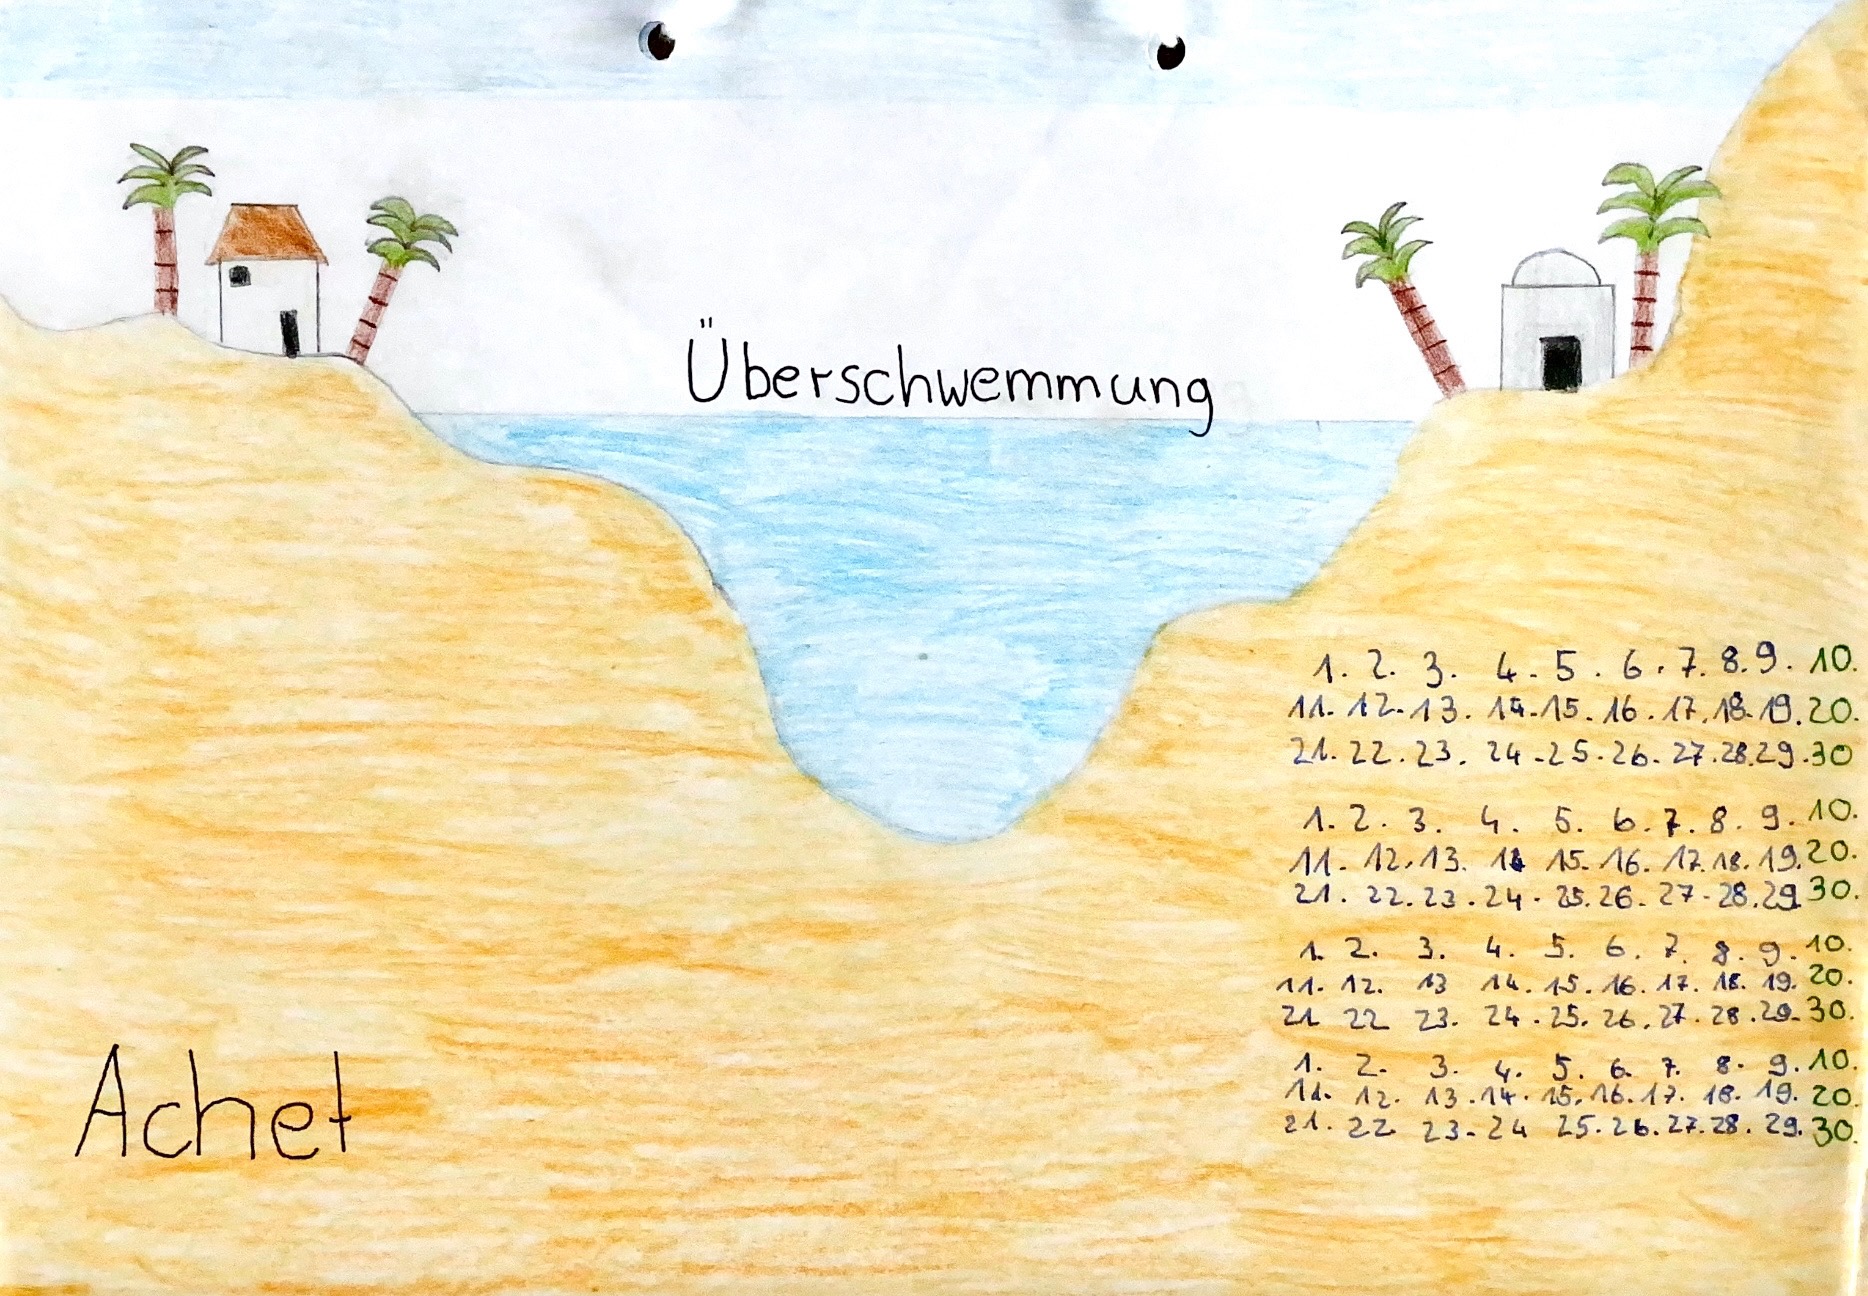 Überschwemmung
1. 2. 3. 4. 5. 6. 7. 8. 9. 10.
11. 12. 13. 14. 15. 16. 17. 18. 19. 20.
21. 22. 23. 24. 25. 26. 27. 28. 29. 30
1. 2. 3. 4. 5. 6. 7. 8. 9. 10.
11. 12. 13. 14 15. 16. 17. 18. 19. 20.
21. 22. 23. 24. 25. 26. 27. 28. 29 30.
1. 2. 3. 4. 5. 6. 7. 8. 9. 10.
11. 12. 13 14. 15. 16. 17. 18. 19. 20.
21 22 23. 24. 25. 26. 27. 28. 29. 30.
1. 2. 3. 4. 5. 6. 7. 8. 9. 10.
11. 12. 13. 14. 15. 16. 17. 18. 19. 20.
21. 22 23. 24 25. 26. 27. 28. 29. 30.
Achet